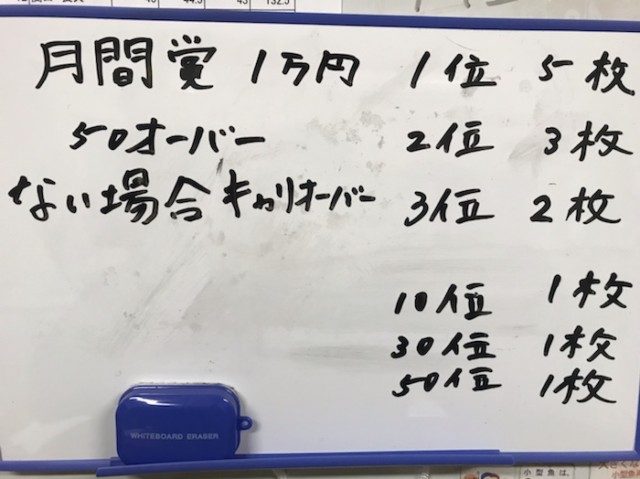 月間賞 1万円 1位 5枚
50オーバー 2位 3枚
ない場合キャリオーバー 3位 2枚
10位 1枚
30位 1枚
50位 1枚
WHITEBOARD ERASER
小型魚は、